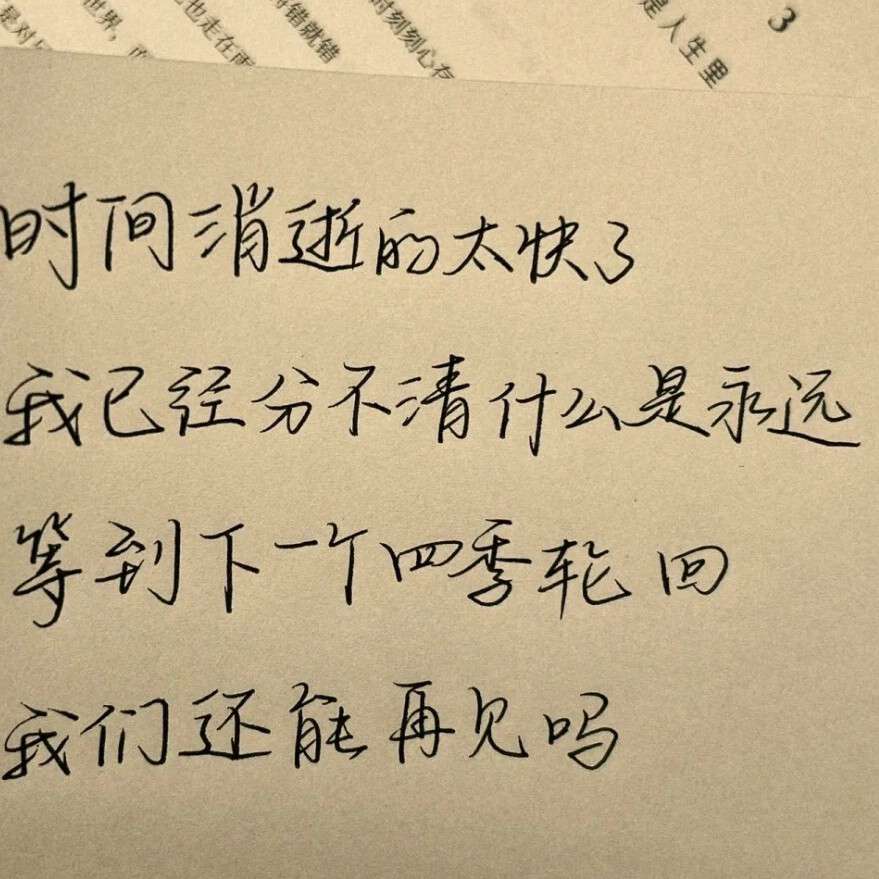 3
是人生里
时时刻刻心存
将错就错
也走在雨
世界，而
是对
时间消逝的太快了
我已经分不清什么是永远
等到下一个四季轮回
我们还能再见吗